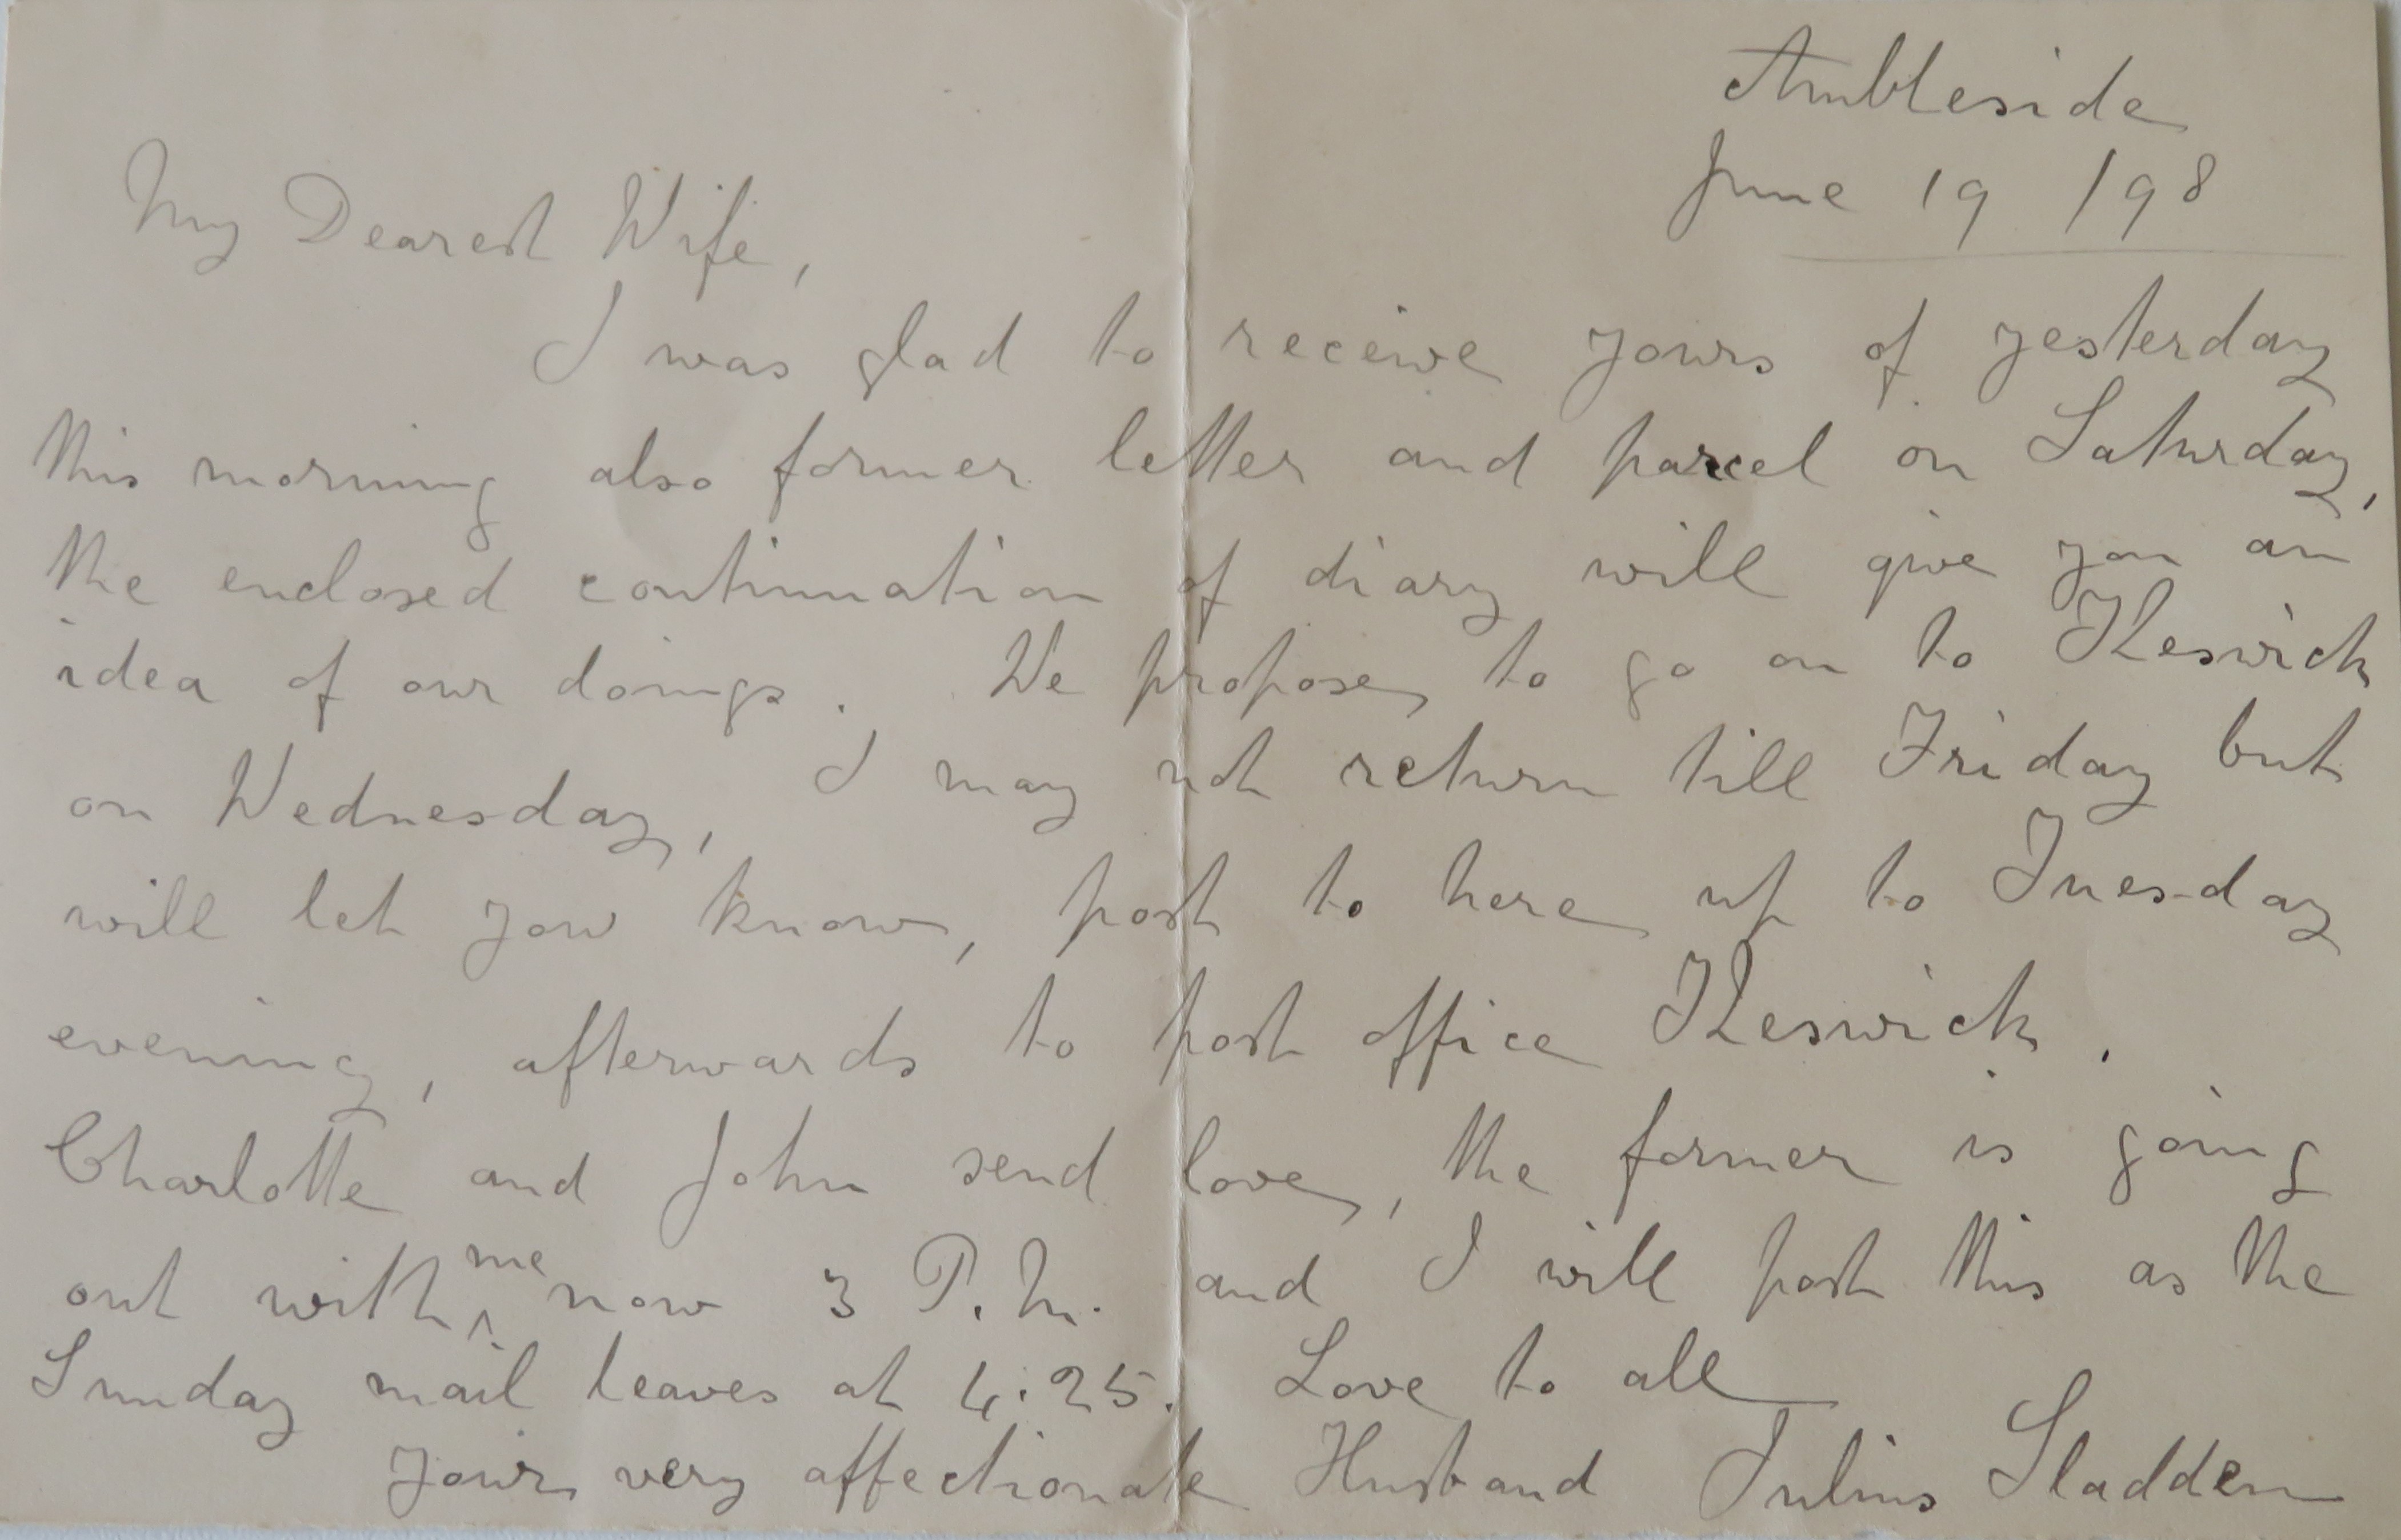 Ambleside
June 19 / 98
My Dearest Wife,
I was glad to receive yours of yesterday
this morning also former letter and parcel on Saturday,
the enclosed continuation of diary will give you an
idea of our doings. We propose to go on to Keswick
on Wednesday, I may not return till Friday but
will let you know, post to here up to Tuesday
evening, afterwards to post office Keswick.
Charlotte and John send love, the former is going
out with me now 3 P.M. and I will post this as the
Sunday mail leaves at 4.25. Love to all
Your very affectionate Husband Julius Sladden